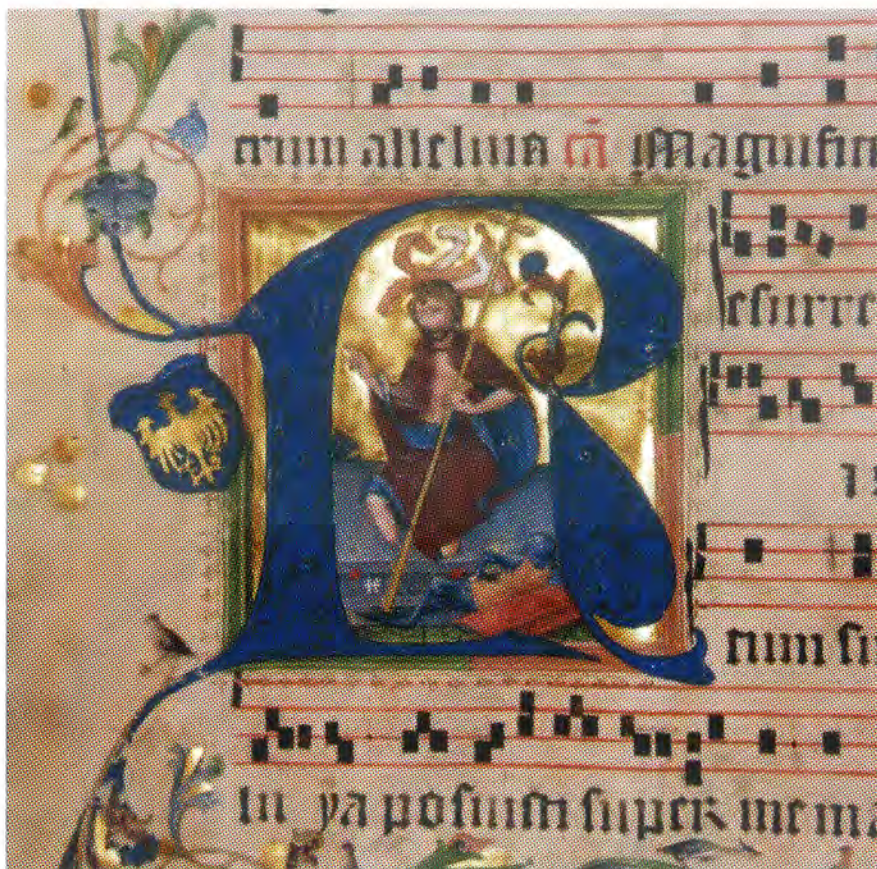 trum alleluia cā Magnific
Resurre
tum su
lu ya posuisti super me ma